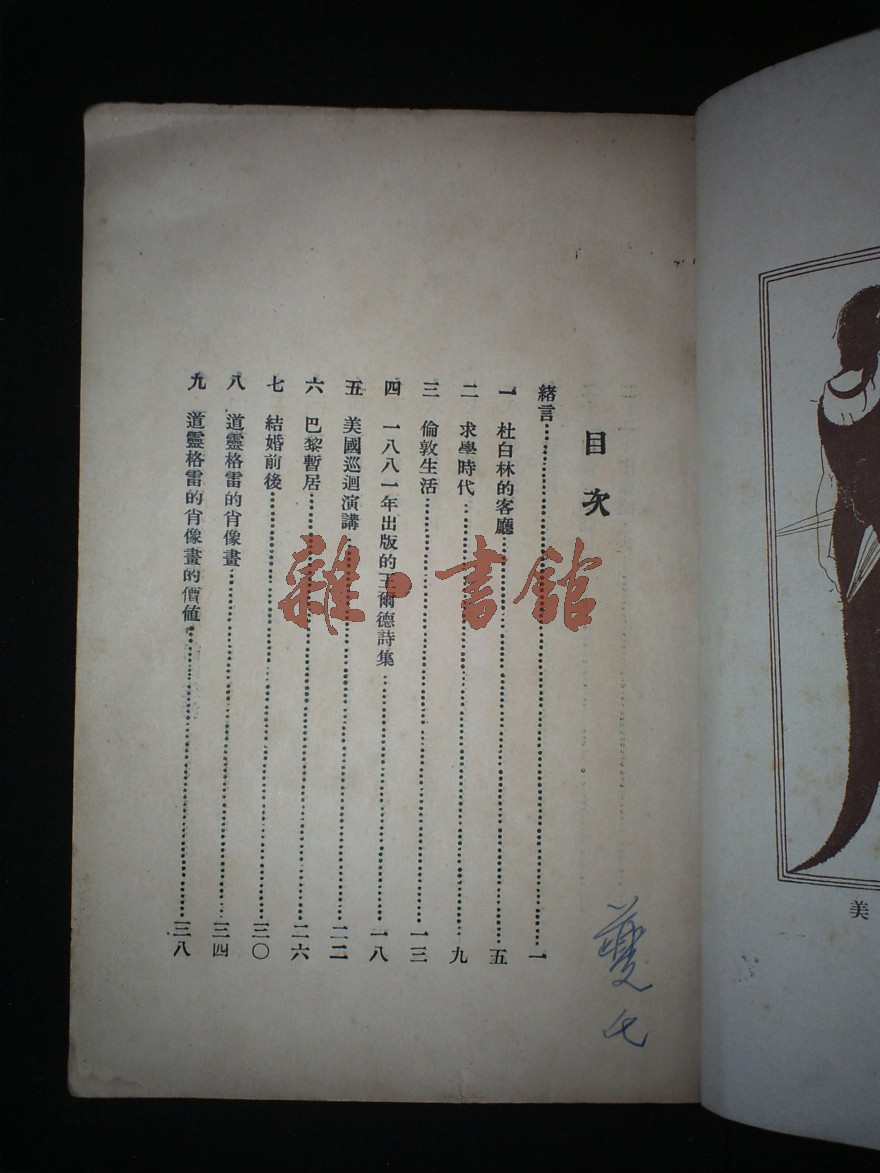 目次
緒言……一
一 杜白林的客廳……五
二 求學時代……九
三 倫敦生活……一三
四 一八八一年出版的王爾德詩集……一八
五 美國巡迴演講……二二
六 巴黎暫居……二六
七 結婚前後……三〇
八 道靈格雷的肖像畫……三四
九 道靈格雷的肖像畫的價值……三八
雜·書館
美